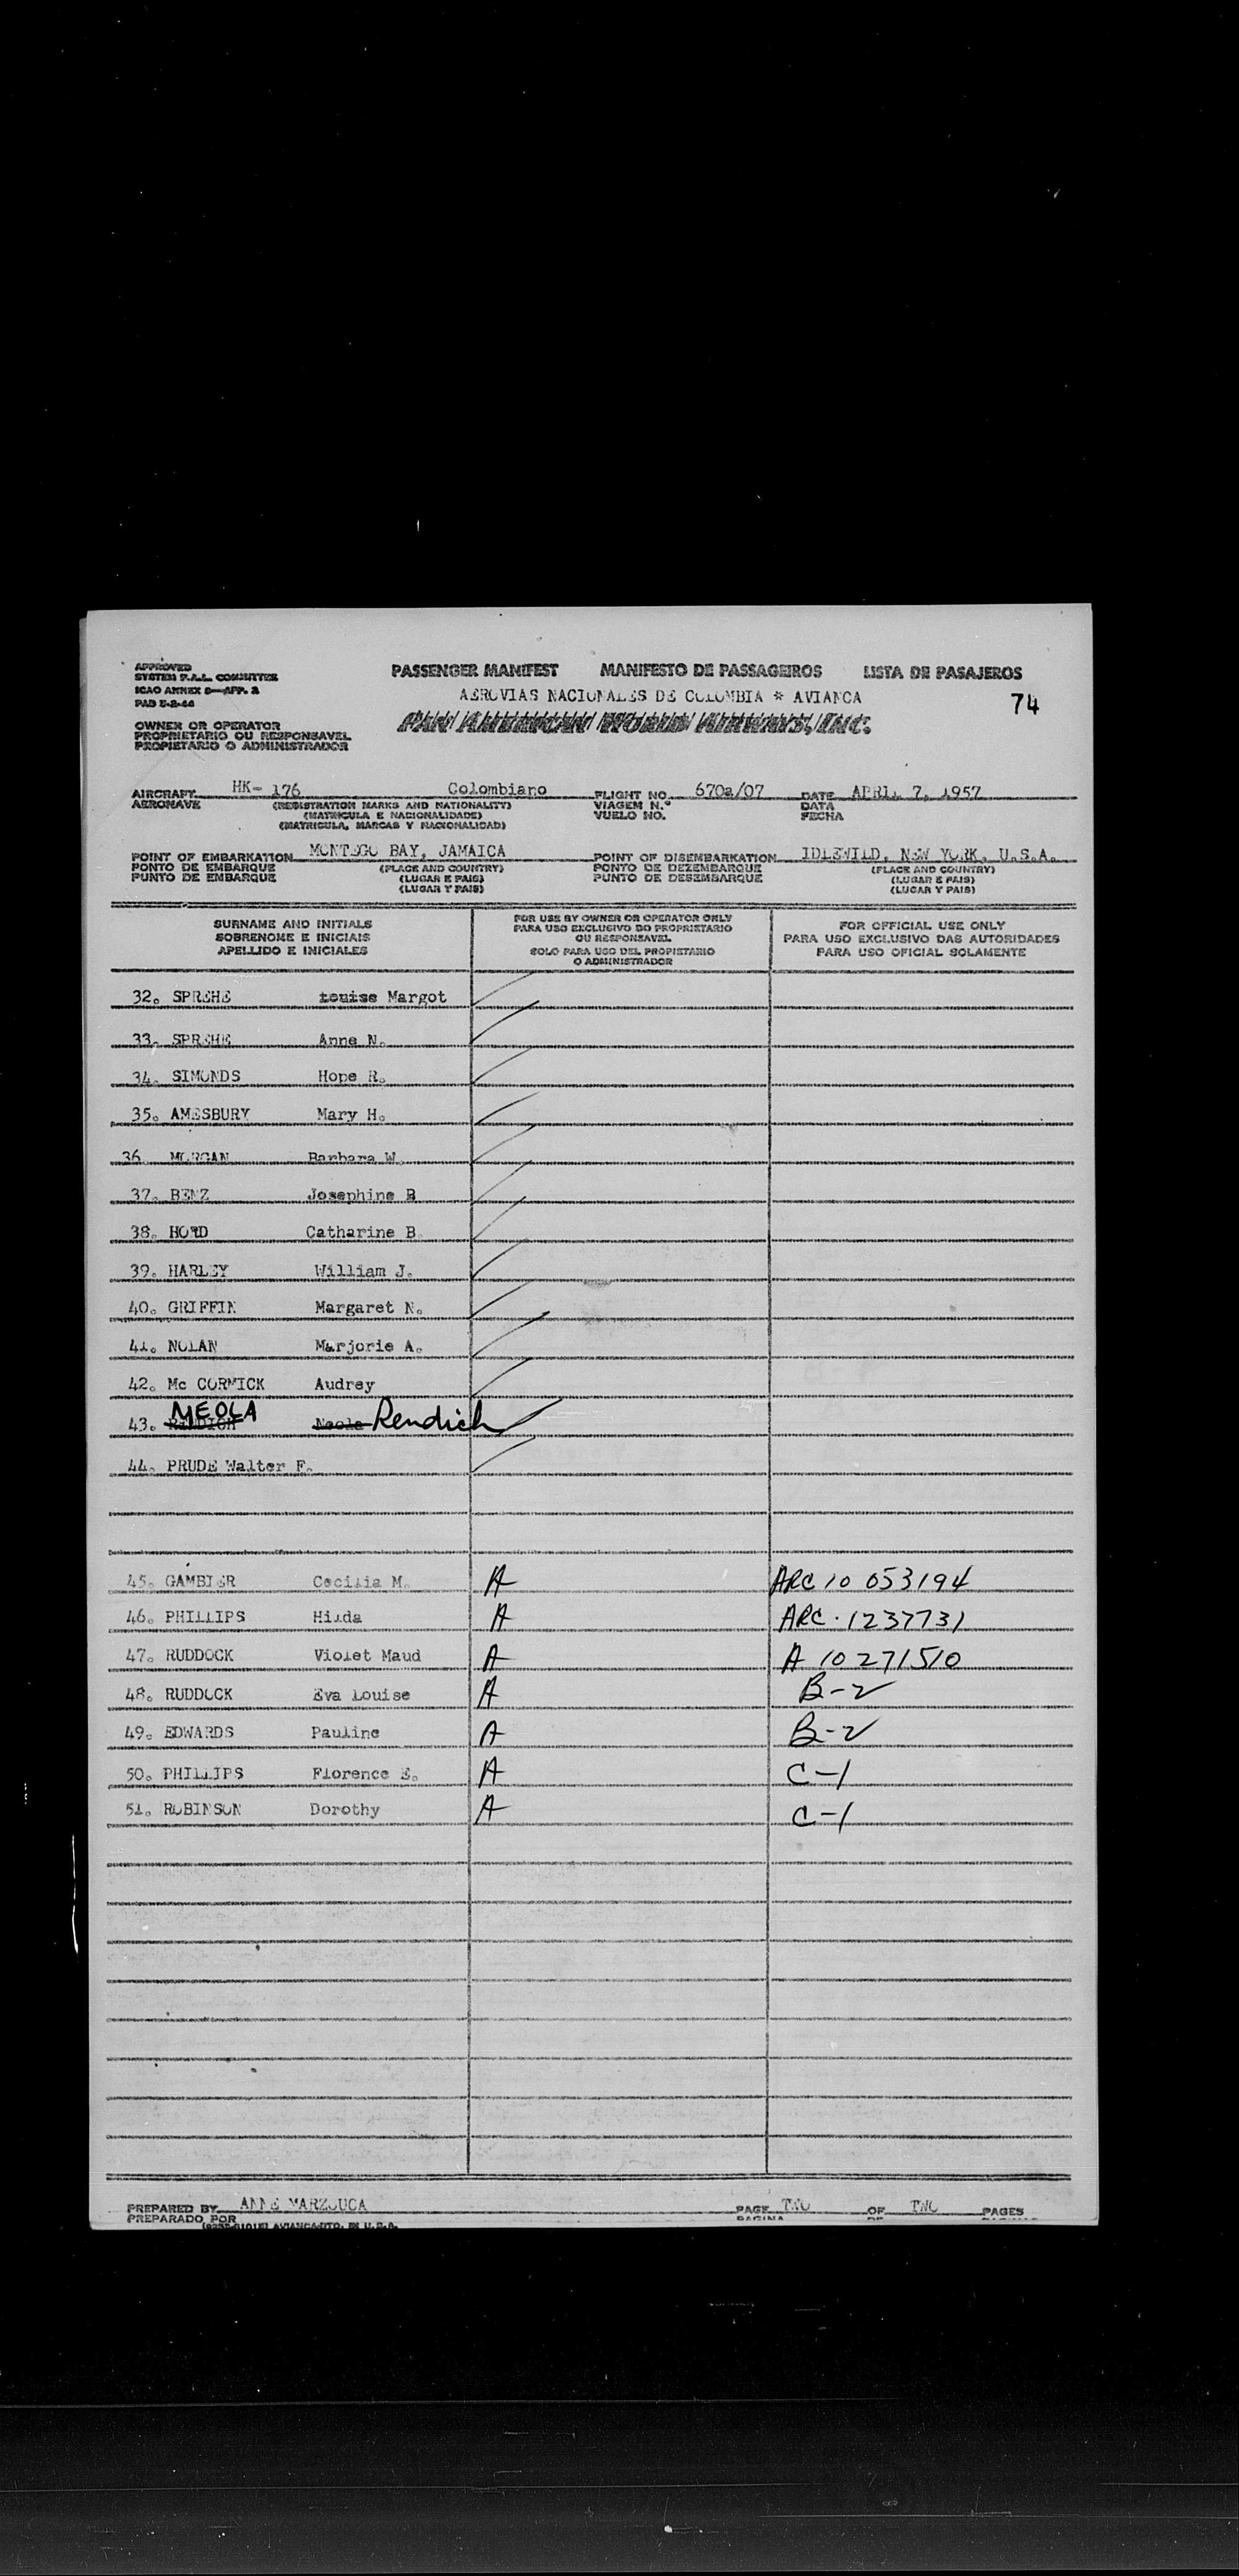 APPROVED
SYSTEM F.A.L. COMMITTEE
ICAO ANNEX 9—APP. 2
PASSENGER MANIFEST MANIFESTO DE PASSAGEIROS LISTA DE PASAJEROS
AEROVIAS NACIONALES DE COLOMBIA * AVIANCA
74
PAN AMERICAN WORLD AIRWAYS, INC.
OWNER OR OPERATOR
PROPRIETARIO OU RESPONSAVEL
PROPIETARIO O ADMINISTRADOR
AIRCRAFT HK- 176 Colombiano FLIGHT NO. 670a/07 DATE APRIL 7, 1957
AERONAVE (REGISTRATION MARKS AND NATIONALITY) VIAGEM N.º DATA
(MATRICULA E NACIONALIDADE) VUELO NO. FECHA
(MATRICULA, MARCAS Y NACIONALIDAD)
POINT OF EMBARKATION MONTEGO BAY, JAMAICA POINT OF DISEMBARKATION IDLEWILD, NEW YORK, U.S.A.
PONTO DE EMBARQUE (PLACE AND COUNTRY) PONTO DE DEZEMBARQUE (PLACE AND COUNTRY)
PUNTO DE EMBARQUE (LUGAR E PAIS) PUNTO DE DESEMBARQUE (LUGAR E PAIS)
(LUGAR Y PAIS) (LUGAR Y PAIS)
SURNAME AND INITIALS
SOBRENOME E INICIAIS
APELLIDO E INICIALES
FOR USE BY OWNER OR OPERATOR ONLY
PARA USO EXCLUSIVO DO PROPRIETARIO
OU RESPONSAVEL
SOLO PARA USO DEL PROPIETARIO
O ADMINISTRADOR
FOR OFFICIAL USE ONLY
PARA USO EXCLUSIVO DAS AUTORIDADES
PARA USO OFICIAL SOLAMENTE
32. SPREHE Louise Margot
33. SPREHE Anne N.
34. SIMONDS Hope R.
35. AMESBURY Mary H.
36. MORGAN Barbara W.
37. BENZ Josephine B
38. HORD Catharine B.
39. HARLEY William J.
40. GRIFFIN Margaret N.
41. NOLAN Marjorie A.
42. Mc CORMICK Audrey
MEOLA
43. RENDICH Meola Rendich
44. PRUDE Walter F.
45. GAMBIER Cecilia M. A ARC 10 053194
46. PHILLIPS Hilda A ARC. 1237731
47. RUDDOCK Violet Maud A A 10 271510
48. RUDDOCK Eva Louise A B-2
49. EDWARDS Pauline A B-2
50. PHILLIPS Florence E. A C-1
51. ROBINSON Dorothy A C-1
PREPARED BY ANNE MARZOUCA PAGE TWO OF TWO PAGES
PREPARADO POR PAGINA DE